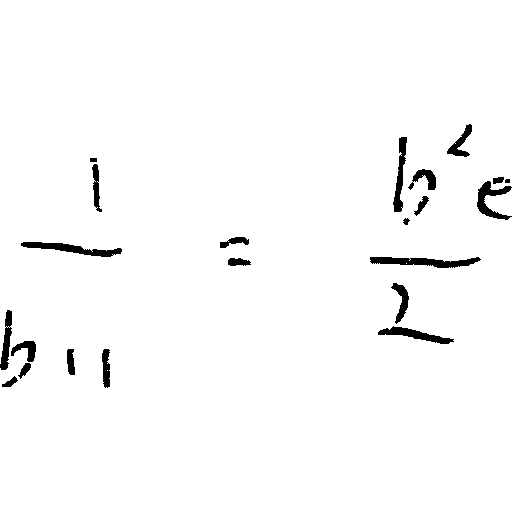 \frac{1}{b_{11}} = \frac{b^{2}e}{2}